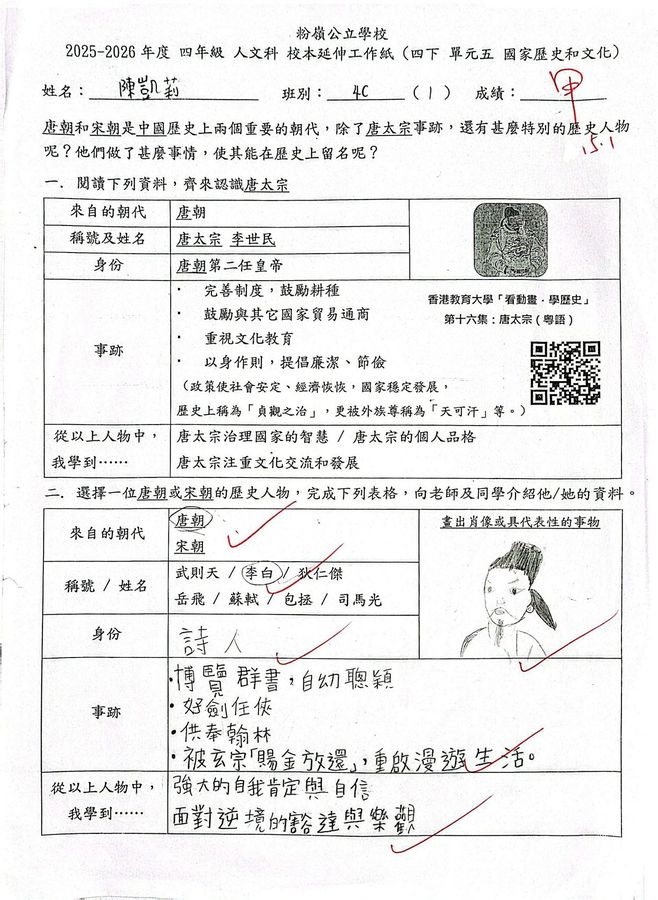 粉嶺公立學校
2025-2026 年度 四年級 人文科 校本延伸工作紙（四下 單元五 國家歷史和文化）
姓名：陳凱莉 班別：4C （1） 成績：甲
15.1
唐朝和宋朝是中國歷史上兩個重要的朝代，除了唐太宗事跡，還有甚麼特別的歷史人物
呢？他們做了甚麼事情，使其能在歷史上留名呢？
一． 閱讀下列資料，齊來認識唐太宗
來自的朝代 唐朝
稱號及姓名 唐太宗 李世民
身份 唐朝第二任皇帝
事跡
· 完善制度，鼓勵耕種
· 鼓勵與其它國家貿易通商
· 重視文化教育
· 以身作則，提倡廉潔、節儉
（政策使社會安定、經濟恢恢，國家穩定發展，
歷史上稱為「貞觀之治」，更被外族尊稱為「天可汗」等。）
香港教育大學「看動畫．學歷史」
第十六集：唐太宗（粵語）
從以上人物中，
我學到……
唐太宗治理國家的智慧 / 唐太宗的個人品格
唐太宗注重文化交流和發展
二． 選擇一位唐朝或宋朝的歷史人物，完成下列表格，向老師及同學介紹他/她的資料。
來自的朝代
唐朝
宋朝
畫出肖像或具代表性的事物
稱號 / 姓名
武則天 / 李白 / 狄仁傑
岳飛 / 蘇軾 / 包拯 / 司馬光
身份 詩人
事跡
·博覽群書，自幼聰穎
·好劍任俠
·供奉翰林
·被玄宗「賜金放還」，重啟漫遊生活。
從以上人物中，
我學到……
強大的自我肯定與自信
面對逆境的豁達與樂觀